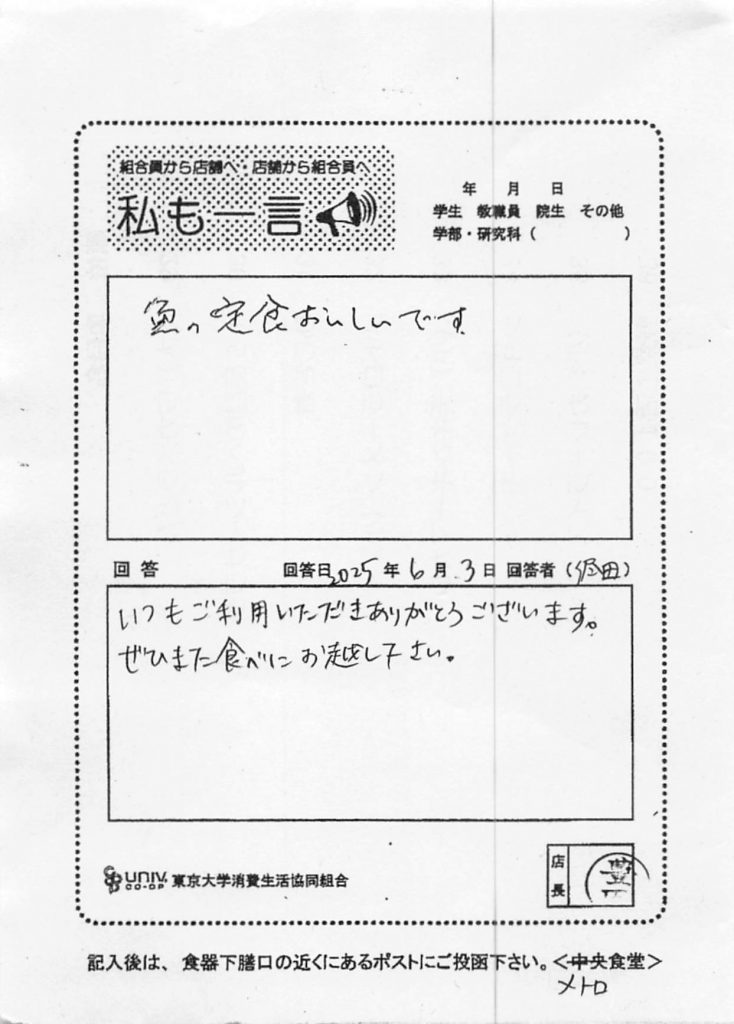 組合員から店舗へ・店舗から組合員へ
私も一言
年 月 日
学生 教職員 院生 その他
学部・研究科( )
魚の定食おいしいです
回答 回答日2025年6月3日 回答者( 田)
いつもご利用いただきありがとうございます。
ぜひまた食べにお越し下さい。
UNIV. CO-OP 東京大学消費生活協同組合
店長
豊
記入後は、食器下膳口の近くにあるポストにご投函下さい。<中央食堂>
メトロ